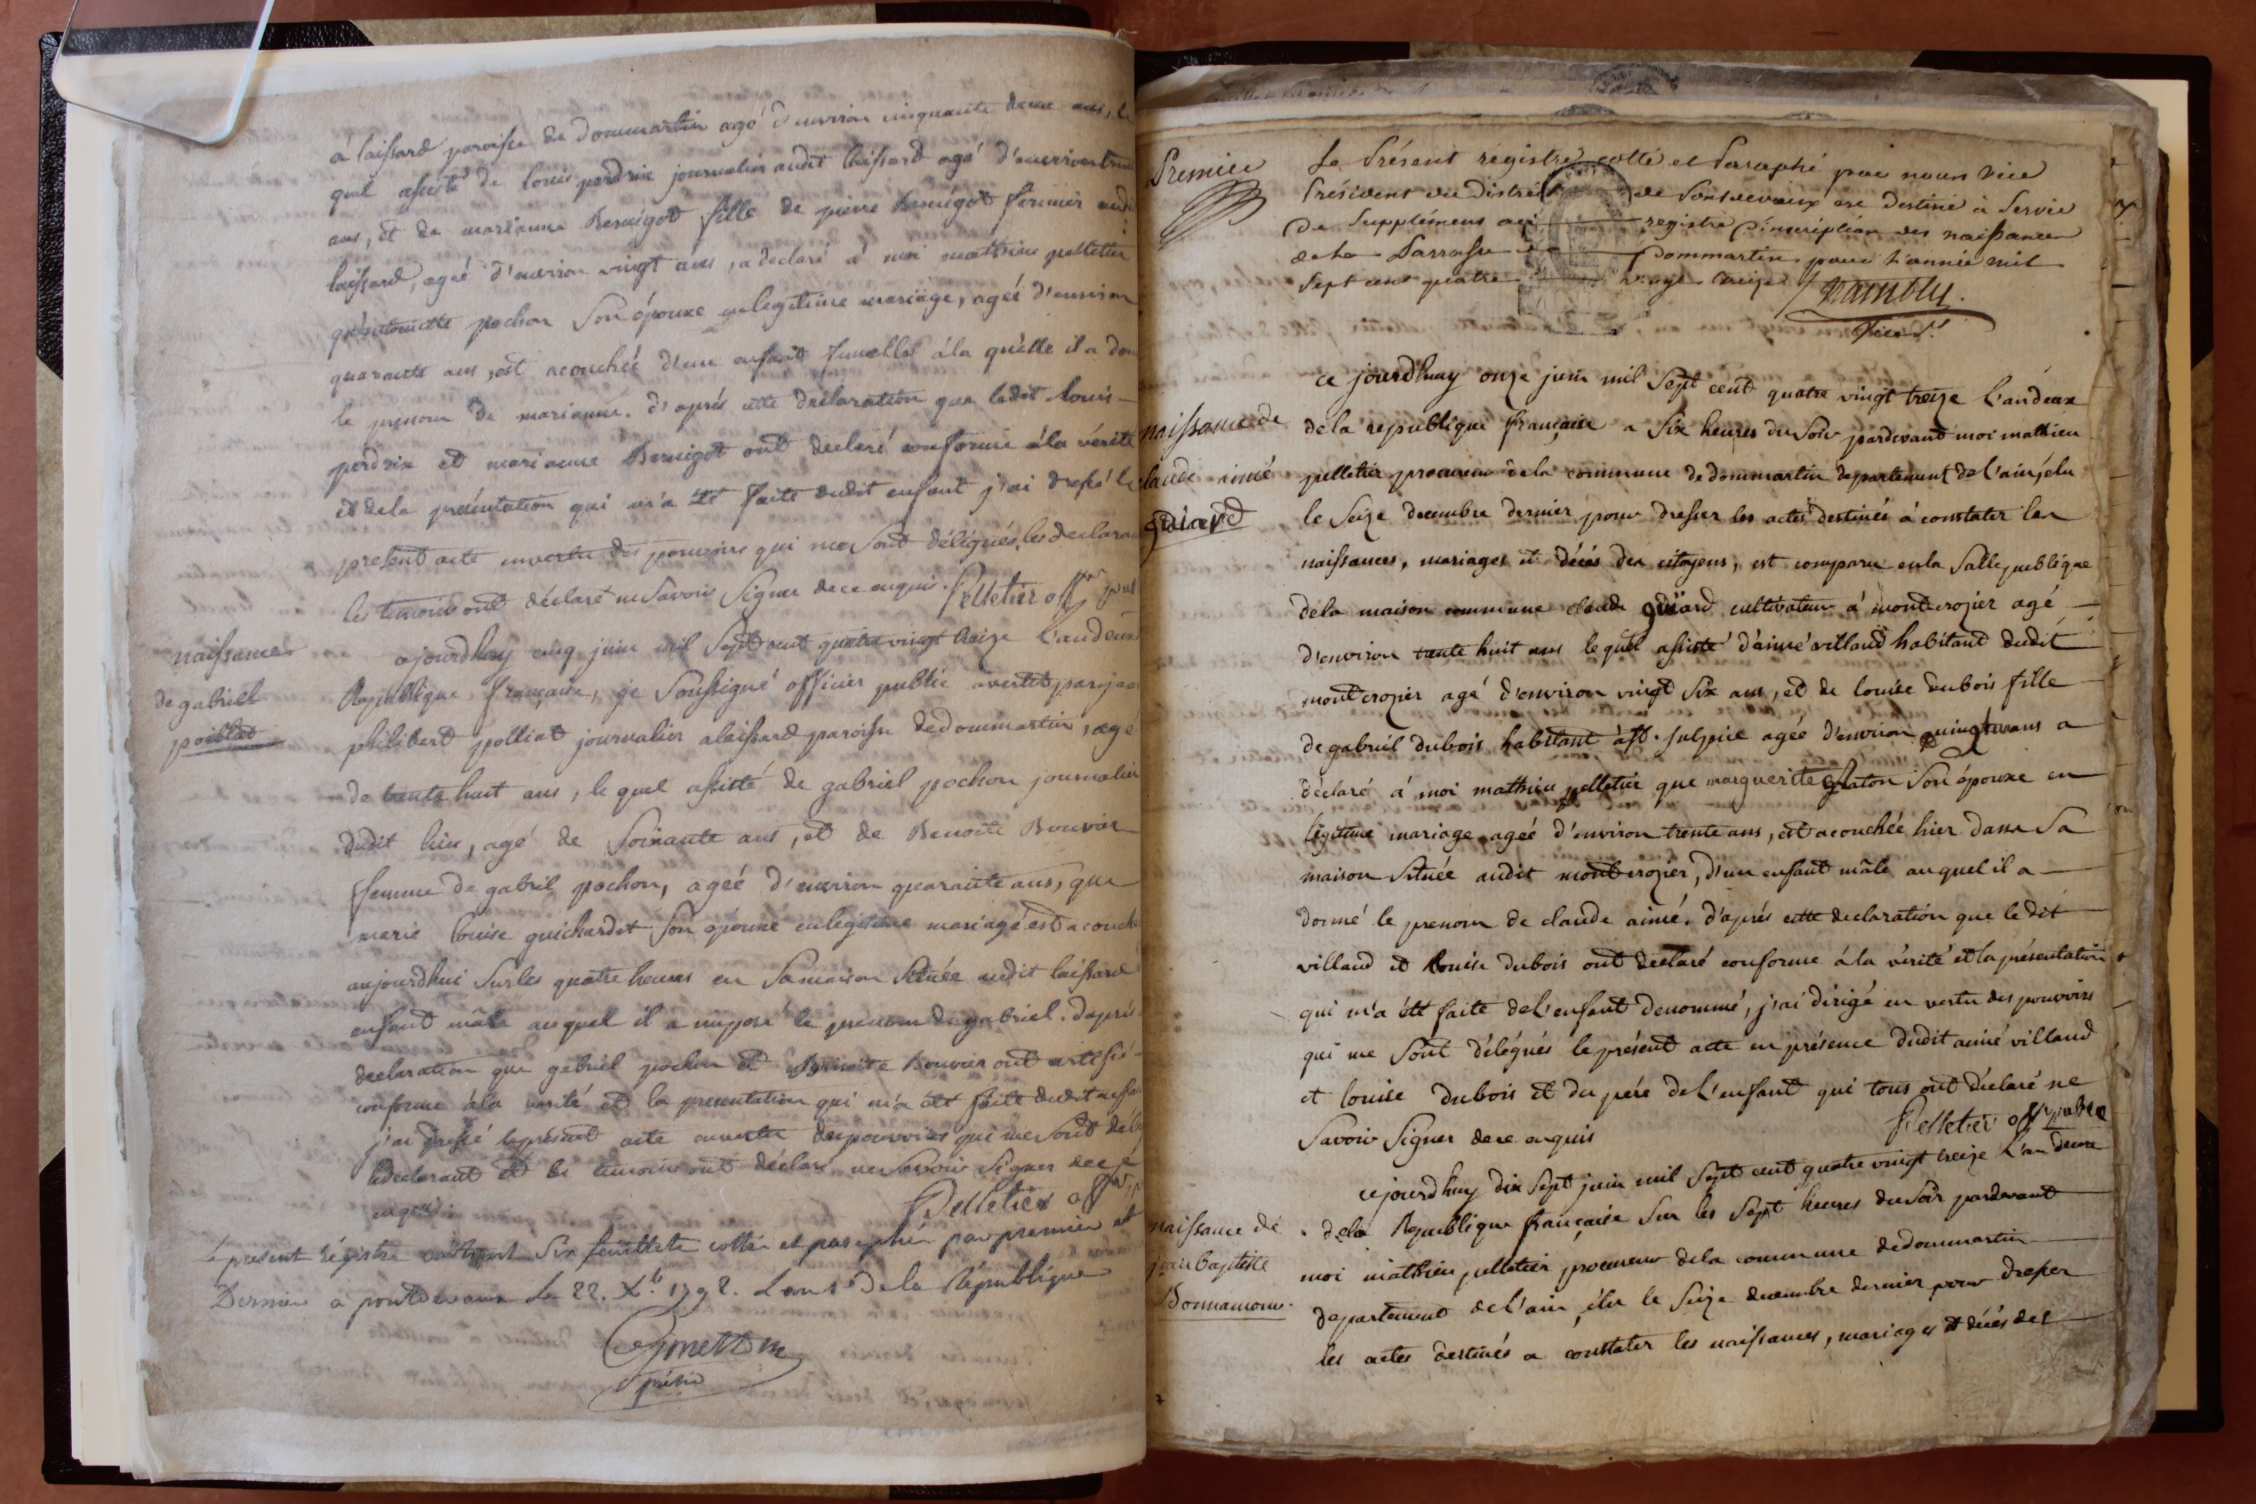 à laissard paroisse de dommartin agé d'environ cinquante deux ans, le
quel assisté de louis perdrix journalier audit laissard agé d'environ trente
ans, et de marianne Bernigot fille de pierre Bernigot fermier audit
laissard, agée d'environ vingt ans, a declaré à moi matthieu pelletier
pochon Son épouse en legitime mariage, agée d'environ
quarante ans, est acouchée d'une enfant fumelle à la quelle il a donné
le prenom de marianne. d'aprés cette déclaration que ledit Louis
perdrix et marianne Bernigot ont declaré conforme à la vérité
et de la présentation qui m'a été faite dudit enfant j'ai dressé le
présent acte en vertu des pouvoirs qui me sont délégués, les declarant
les temoins ont déclaré ne Savoir Signer de ce enquis. Pelletier offer
naissance
de gabriel
poillat
ajourdhuy cinq juin mil Sept cent quatre vingt treize l'an deux
République française, je Soussigné officier public avertit par
philibert polliat journalier a laissard paroisse de dommartin, agé
de trente huit ans, le quel assisté de gabriel pochon journalier
dudit lieu, agé de Soixante ans, et de Benoite Bouvier
femme de gabriel pochon, ageé d'environ quarante ans, que
marie louise guichardet Son épouse en legitime mariage est acouché
aujourdhui Sur les quatre heures en Sa maison Située audit laissard
enfant mâle auquel il a imposé le prenom de gabriel. d'aprés
declaration que gabriel pochon et Benoite Bouvier ont attesté
conforme à la verité et la presentation qui m'a été faite dudit enfant
j'ai dressé le présent acte en vertu des pouvoirs qui me Sont délé
le declarant et les temoins ont déclaré ne Savoir Signer de ce
enquis
Pelletier offer
présent régistre contenant Six feuillets cottés et paraphés par premier et
Dernier à pontdevaux le 22. Xb. 1792. L'an 1er de la République
présid
Premier
Le Présent régistre cotté et Paraphé par nous vice
Président du District de Pontdevaux est destiné à Servir
De Supplément au registre d'inscription des naissances
de la Parroisse Dommartin pour l'année mil
Sept cent quatre vingt treize
vice
naissance de
claude aimé
guiard
ce jourdhuy onze juin mil Sept cent quatre vingt treize l'an deux
de la republique française a Six heures du Soir pardevant moi mathieu
pelletier procureur de la commune de dommartin departement de l'ain, élu
le Seize decembre dernier pour dresser les actes destinés à constater les
naissances, mariages et décés des citoyens, est comparu en la Salle publique
de la maison commune claude guiard cultivateur à montcrozier agé
d'environ trente huit ans lequel assisté d'aimé villaud habitant dudit
montcrozier agé d'environ vingt Six ans, et de louise dubois fille
de gabriel dubois habitant à St. Sulpice agée d'environ ans a
déclaré à moi mathieu pelletier que marguerite Son épouse en
légitime mariage agée d'environ trente ans, est acouchée hier dans Sa
maison Située audit montcrozier, d'un enfant mâle auquel il a
donné le prenom de claude aimé. d'aprés cette declaration que ledit
villaud et louise dubois ont declaré conforme à la vérité et la présentation
qui m'a été faite de l'enfant denommé, j'ai dirigé en vertu des pouvoirs
qui me Sont délégués le présent acte en présence dudit aimé villaud
et louise dubois et du pére de l'enfant qui tous ont déclaré ne
Savoir Signer de ce enquis
Pelletier offer public
naissance de
jean baptiste
Bonnamour
cejourdhuy dix Sept juin mil Sept cent quatre vingt treize l'an deux
de la République française Sur les Sept heures du Soir pardevant
moi mathieu pelletier procureur de la commune de dommartin
departement de l'ain, élu le Seize decembre dernier pour dresser
les actes destinés a constater les naissances, mariages et décés des